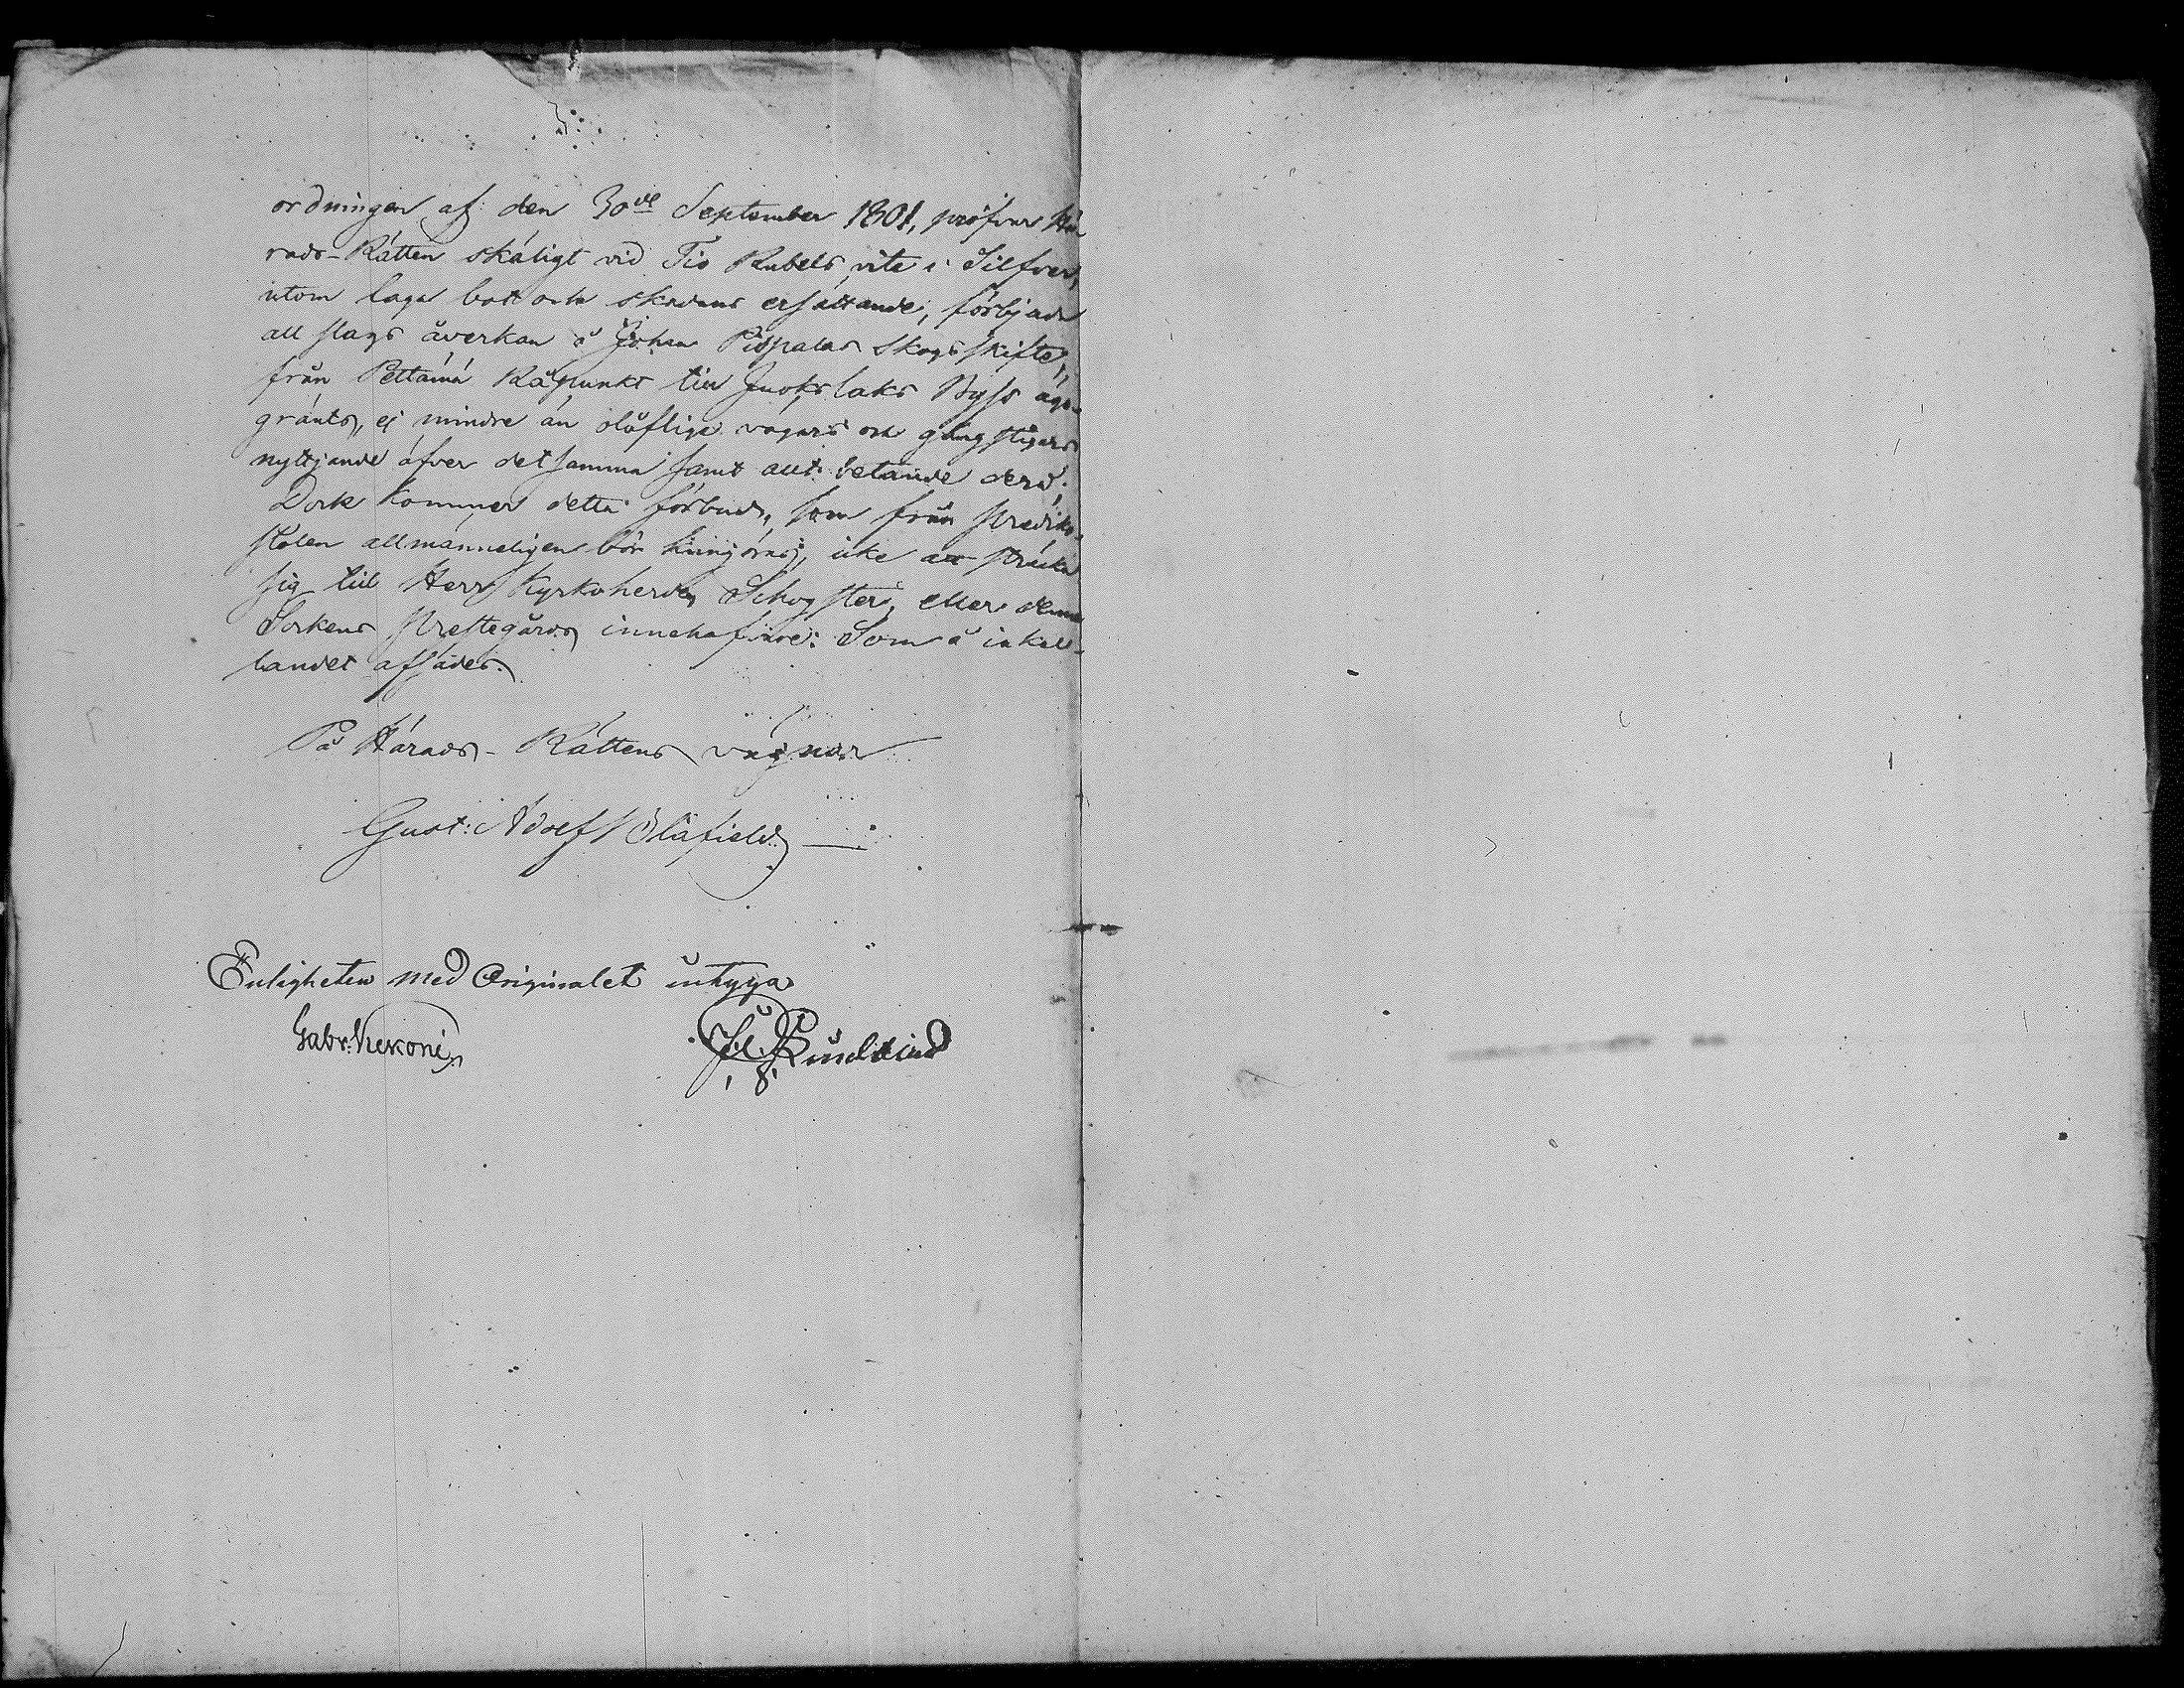 ordningen af den 30de September 1801, pröfvar Hä
rads-Rätten skäligt vid Tio Rubels vite i Silfver,
utom laga bot och skadans ersättande, förbjuda
all slags åverkan å Johan Pispalas skogsskifte,
från Pettämä Råpunkt till Juokslaks Byss ägo-
gränts, ej mindre än olåfliga vägars och gångstigars
nyttjande öfver detsamma samt allt betande derå;
Dock kommer detta förbud, som från Prediko-
stolen allmänneligen bör kungöras, icke att sträcka
sig till Herr Kyrkoherden Schogster, eller denna
Sockens Prestegårds innehafvare: Som å inkall-
landet afsades.
På Härads-Rättens vägnar
Gust: Adolf
Enligheten med Originalet intyga
Gabr: